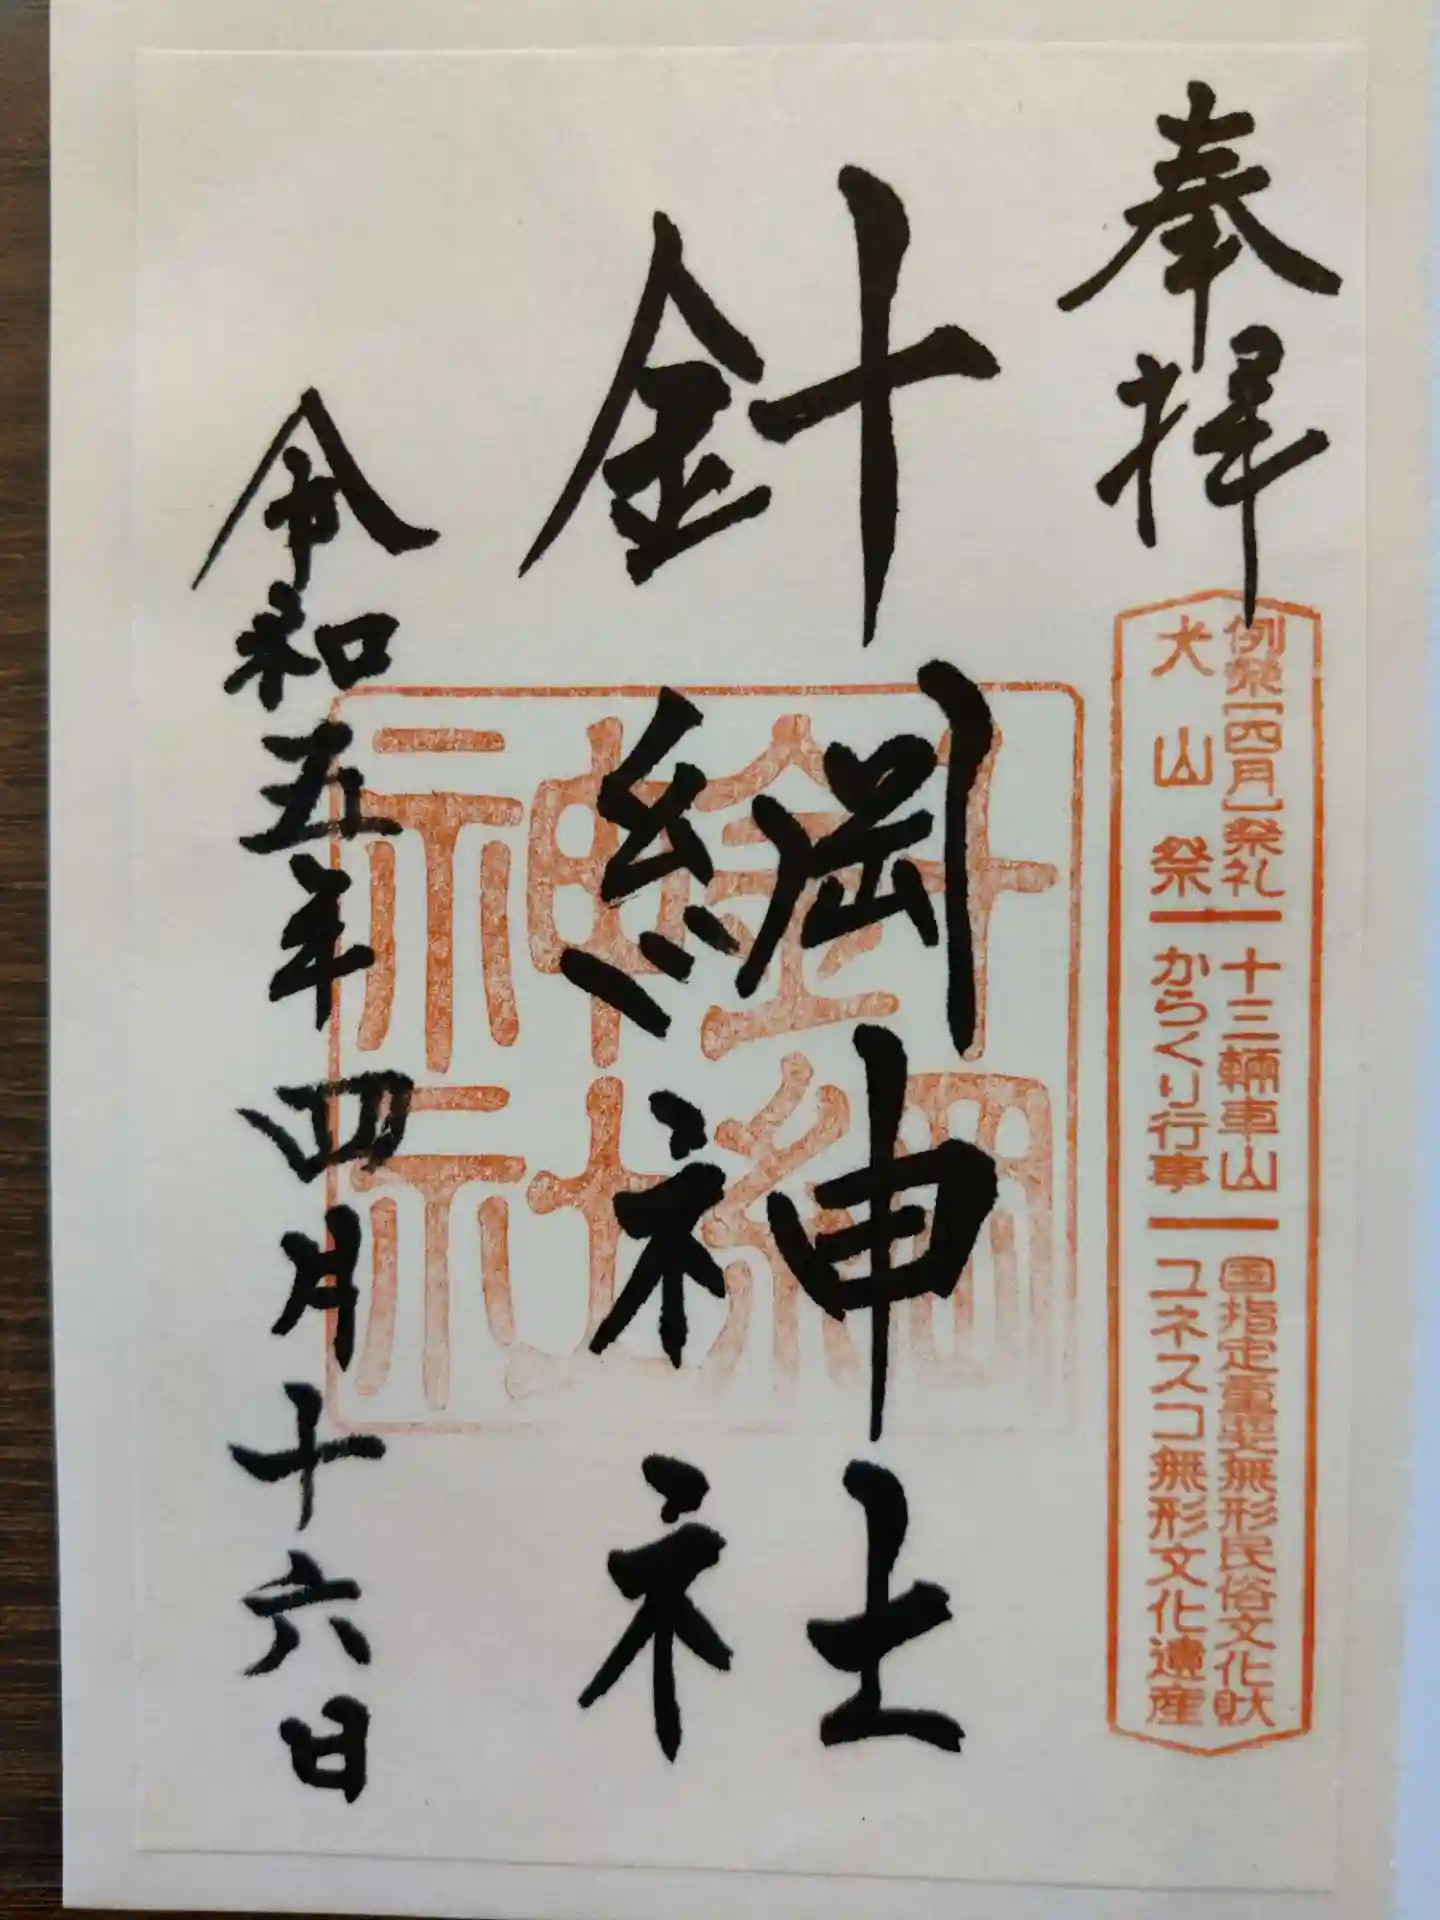 奉拝
例祭[四月]祭礼 十三輛車山 国指定重要無形民俗文化財
犬山祭 からくり行事 ユネスコ無形文化遺産
針綱神社
針綱神社
令和五年四月十六日